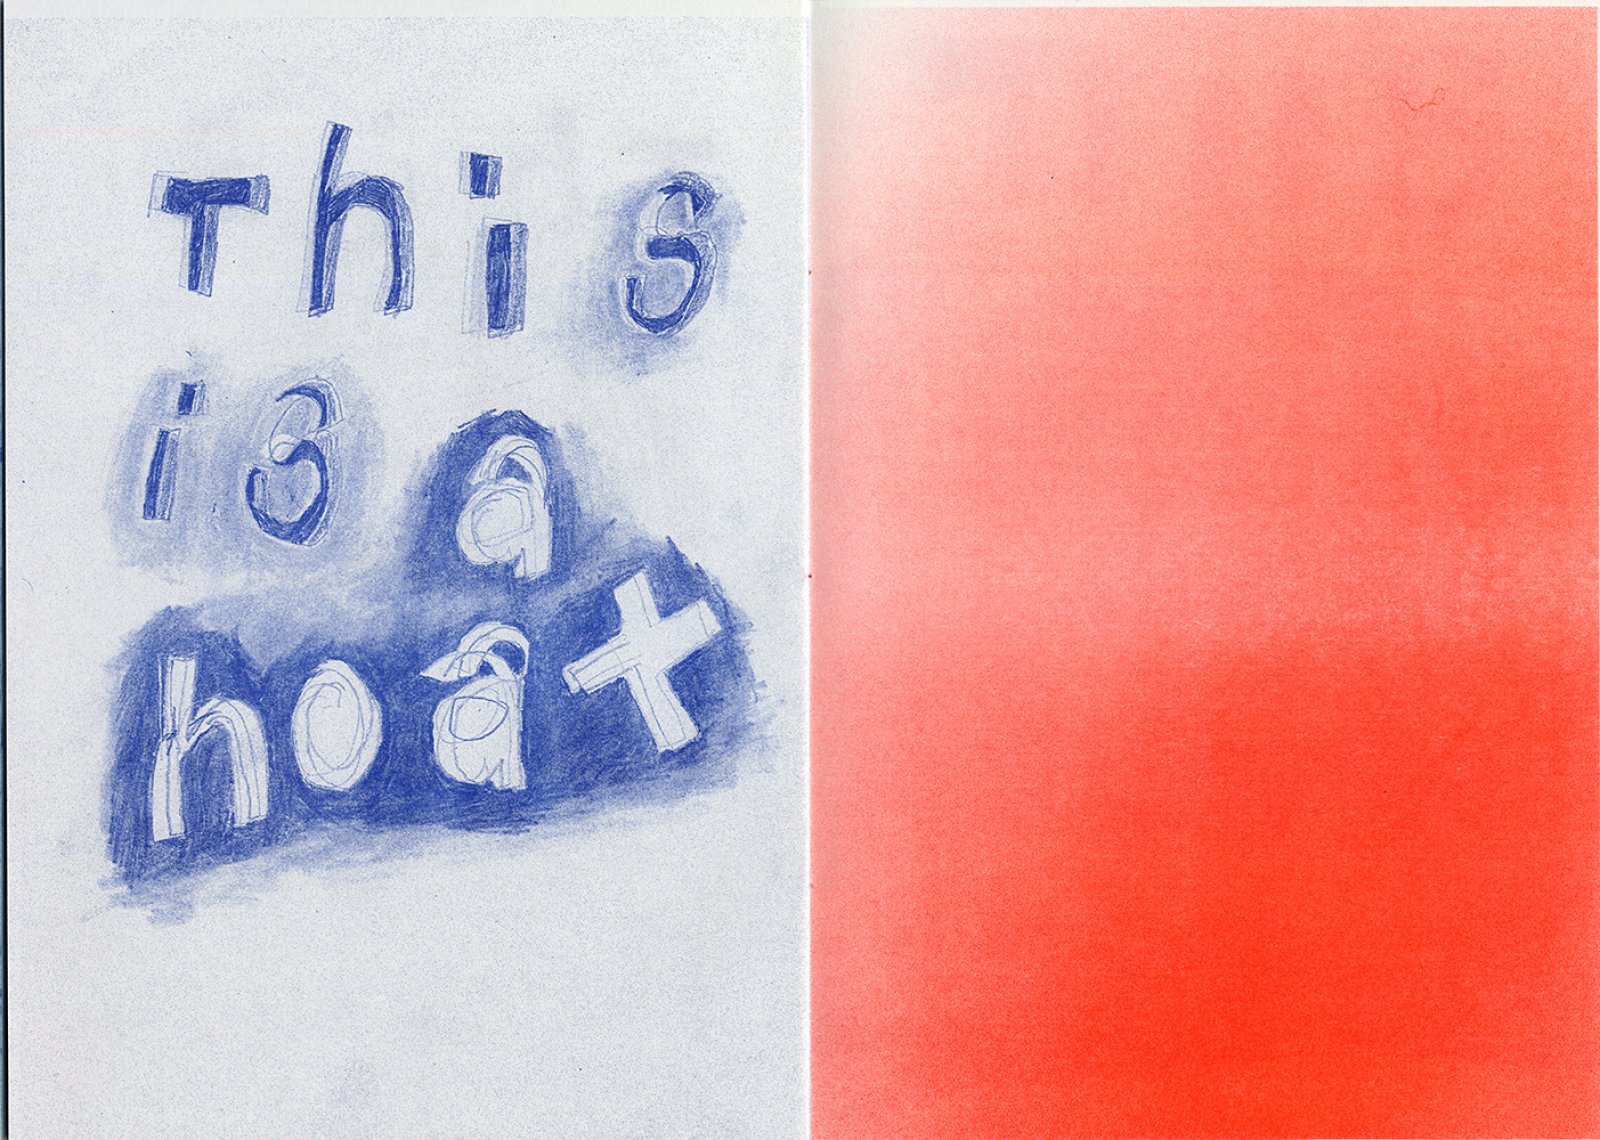 This
is a
hoat